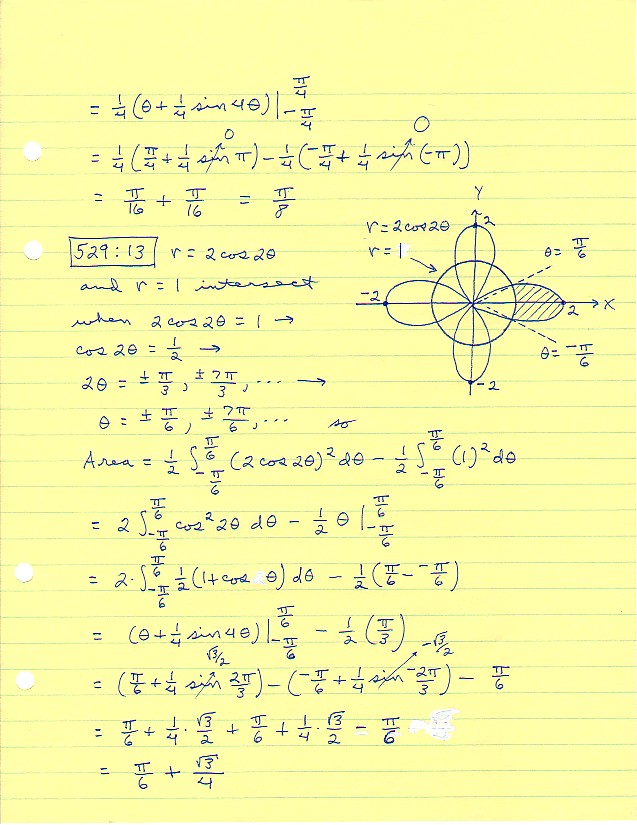 = 1/4 (θ + 1/4 sin 4θ) |_{-π/4}^{π/4}
= 1/4 (π/4 + 1/4 sin π) - 1/4 (-π/4 + 1/4 sin (-π))
0
0
= π/16 + π/16 = π/8
529:13 r = 2 cos 2θ
and r = 1 intersect
when 2 cos 2θ = 1 →
cos 2θ = 1/2 →
2θ = ± π/3, ± 7π/3, ··· →
θ = ± π/6, ± 7π/6, ··· so
Y
r = 2 cos 2θ
r = 1
2
θ = π/6
-2
2
X
θ = -π/6
-2
Area = 1/2 ∫_{-π/6}^{π/6} (2 cos 2θ)² dθ - 1/2 ∫_{-π/6}^{π/6} (1)² dθ
= 2 ∫_{-π/6}^{π/6} cos² 2θ dθ - 1/2 θ |_{-π/6}^{π/6}
= 2 · ∫_{-π/6}^{π/6} 1/2 (1 + cos θ) dθ - 1/2 (π/6 - -π/6)
= (θ + 1/4 sin 4θ) |_{-π/6}^{π/6} - 1/2 (π/3)
√3/2
-√3/2
= (π/6 + 1/4 sin 2π/3) - (-π/6 + 1/4 sin -2π/3) - π/6
= π/6 + 1/4 · √3/2 + π/6 + 1/4 · √3/2 - π/6
= π/6 + √3/4